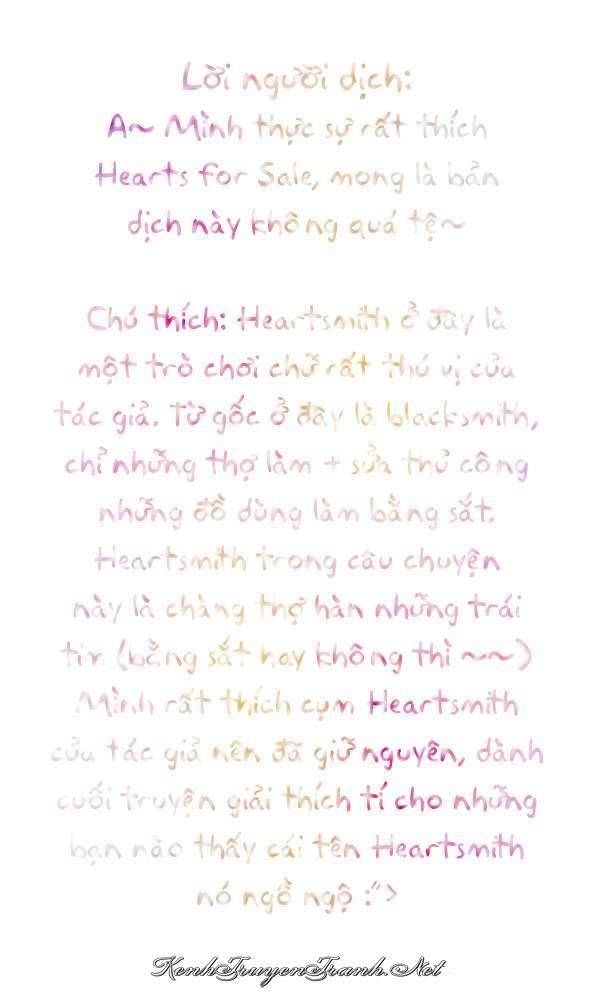 Lời người dịch:
A~ Mình thực sự rất thích
Hearts for Sale, mong là bản
dịch này không quá tệ~
Chú thích: Heartsmith ở đây là
một trò chơi chữ rất thú vị của
tác giả. Từ gốc ở đây là blacksmith,
chỉ những thợ làm + sửa thủ công
những đồ dùng làm bằng sắt.
Heartsmith trong câu chuyện
này là chàng thợ hàn những trái
tim (bằng sắt hay không thì ~~)
Mình rất thích cụm Heartsmith
của tác giả nên đã giữ nguyên, dành
cuối truyện giải thích tí cho những
bạn nào thấy cái tên Heartsmith
nó ngồ ngộ :">
KenhTruyenTranh.Net